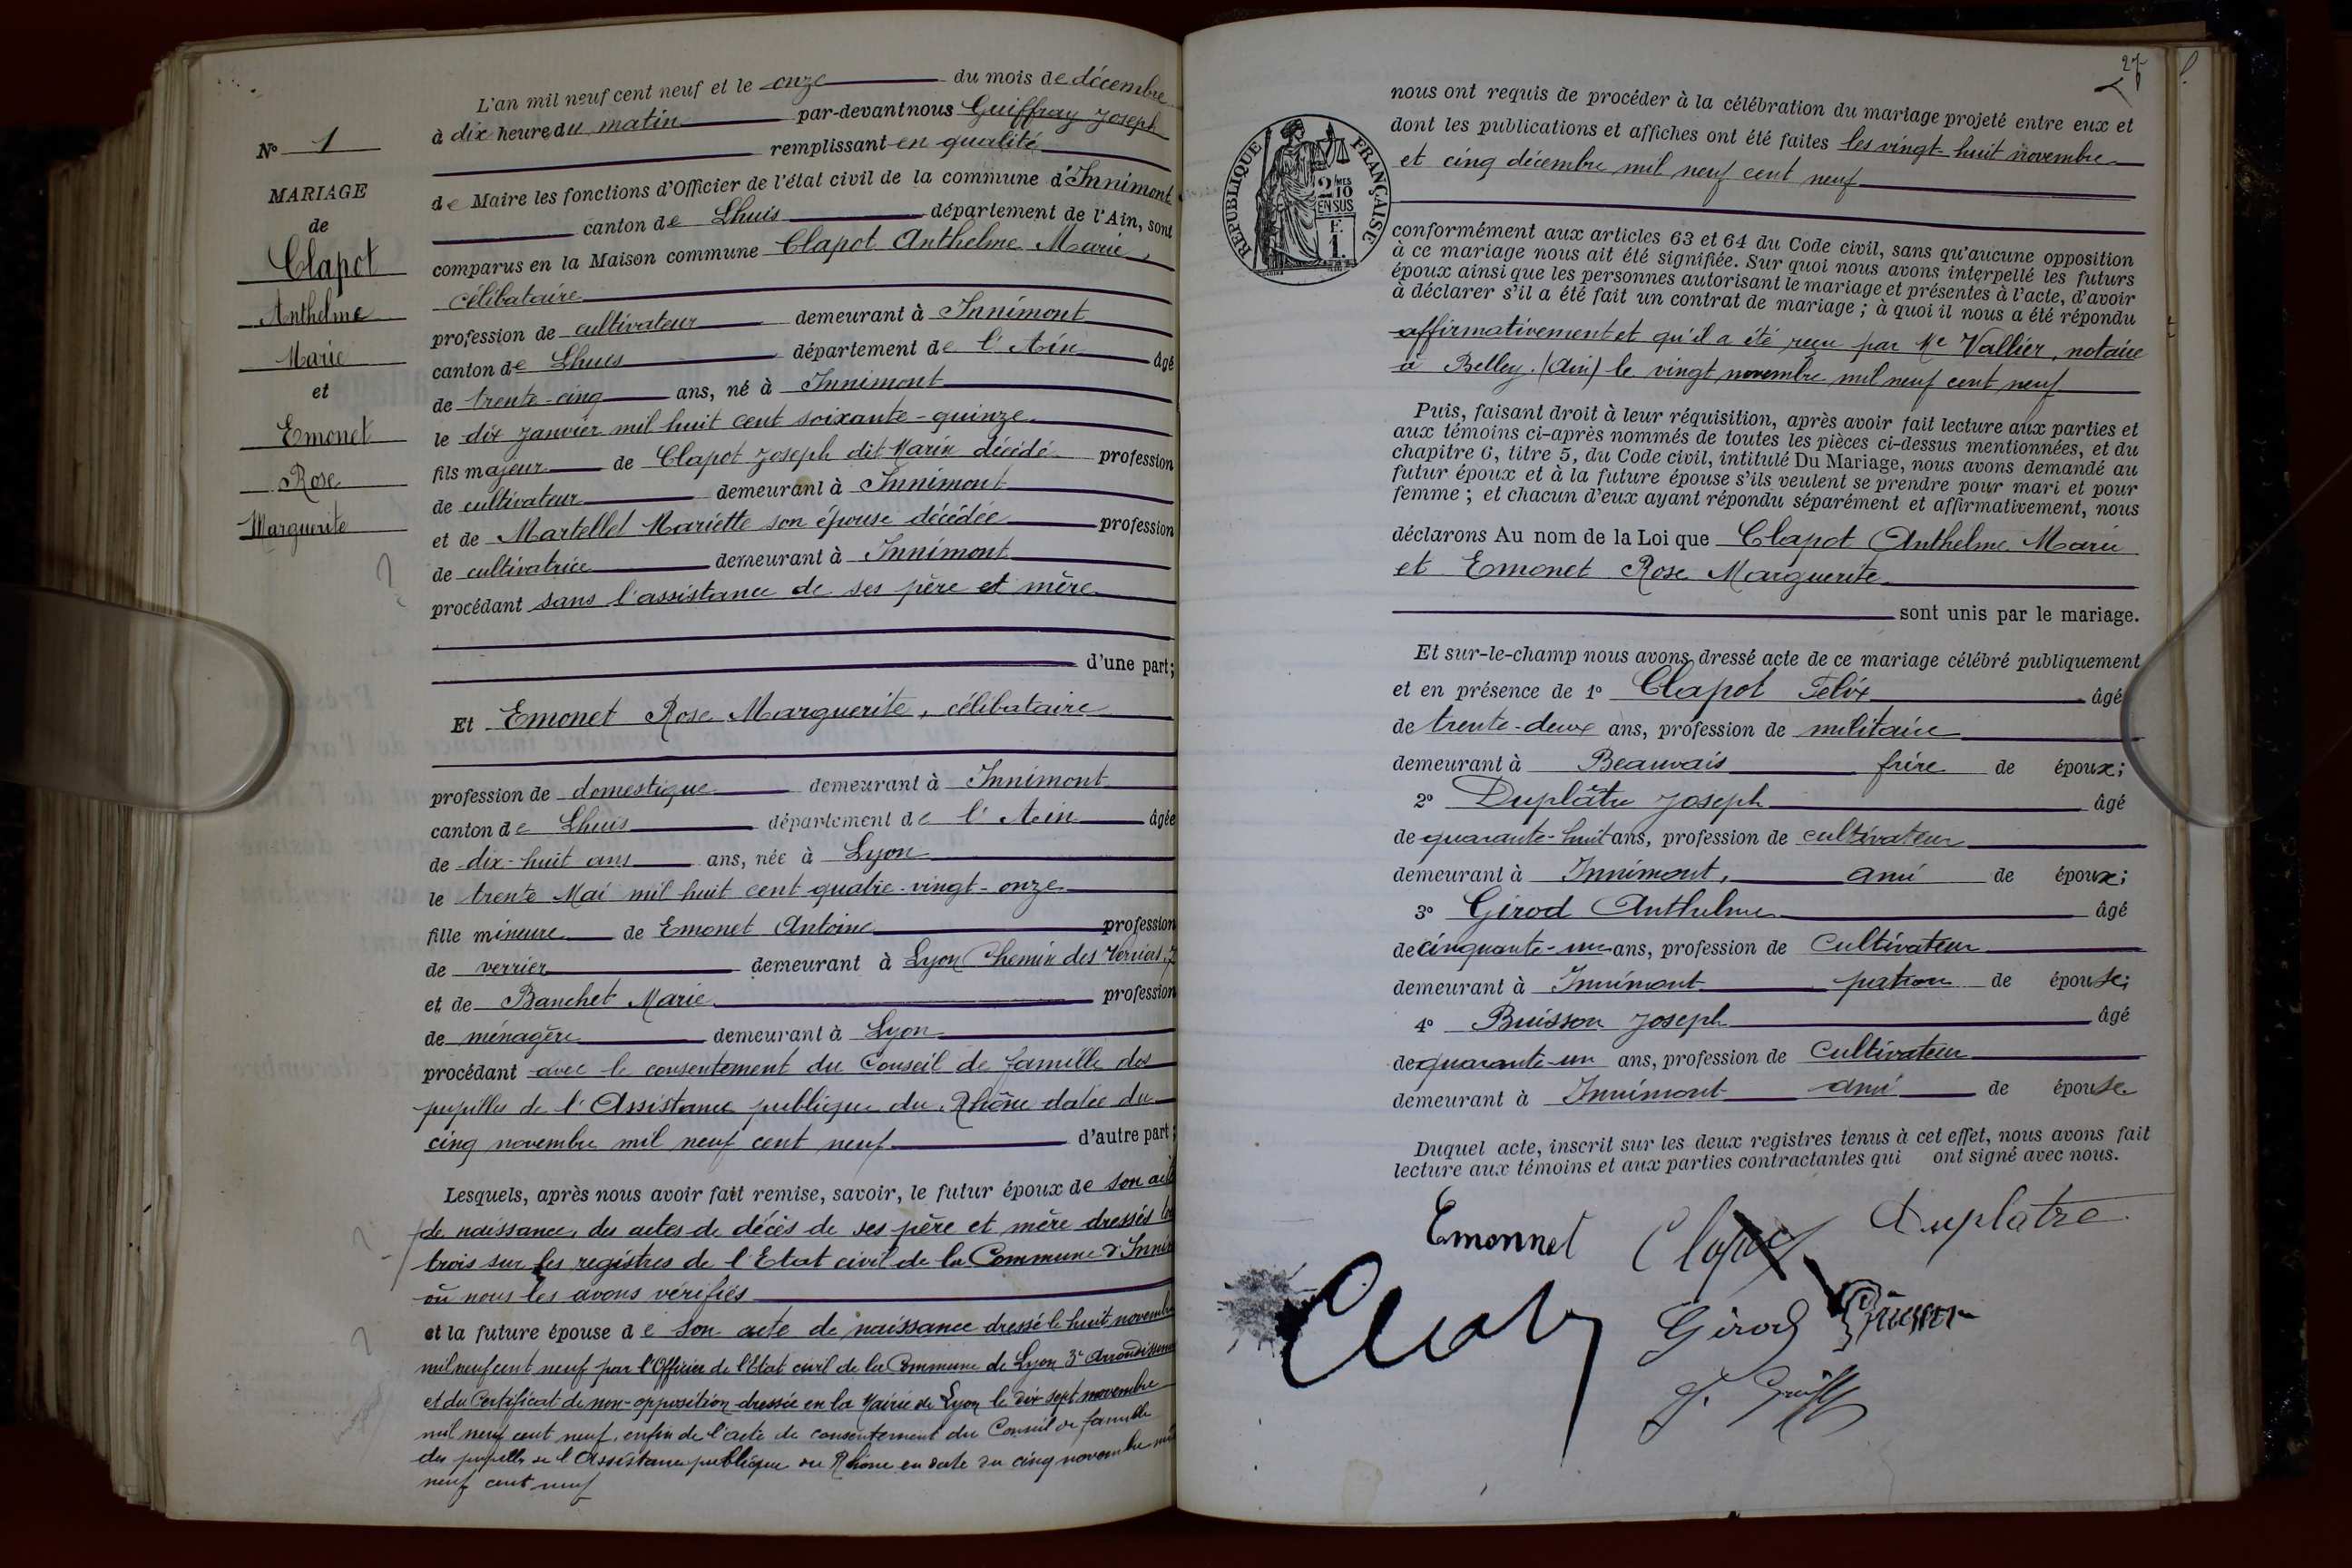 N° 1
MARIAGE
de
Clapot
Anthelme
Marie
et
Emonet
Rose
Marguerite
L'an mil neuf cent neuf et le onze du mois de décembre
à dix heure du matin par-devant nous Guiffray Joseph
remplissant en qualité
de Maire les fonctions d'Officier de l'état civil de la commune d'Innimont
canton de Lhuis département de l'Ain, sont
comparus en la Maison commune Clapot Anthelme Marie,
célibataire
profession de cultivateur demeurant à Innimont
canton de Lhuis département de l'Ain âgé
de trente-cinq ans, né à Innimont
le dix janvier mil huit cent soixante-quinze
fils majeur de Clapot Joseph dit Marin décédé profession
de cultivateur demeurant à Innimont
et de Martellet Mariette son épouse décédée profession
de cultivatrice demeurant à Innimont
procédant sans l'assistance de ses père et mère
d'une part;
Et Emonet Rose Marguerite, célibataire
profession de domestique demeurant à Innimont
canton de Lhuis département de l'Ain âgée
de dix-huit ans ans, née à Lyon
le trente Mai mil huit cent quatre-vingt-onze
fille mineure de Emonet Antoine profession
de verrier demeurant à Lyon Chemin des
et de Banchet Marie profession
de ménagère demeurant à Lyon
procédant avec le consentement du Conseil de famille des
pupilles de l'Assistance publique du Rhône datée du
cinq novembre mil neuf cent neuf d'autre part;
Lesquels, après nous avoir fait remise, savoir, le futur époux de son acte
de naissance, des actes de décès de ses père et mère dressés
trois sur les registres de l'Etat civil de la Commune d'Innim
où nous les avons vérifiés
et la future épouse de son acte de naissance dressé le huit novembre
mil neuf cent neuf par l'Officier de l'Etat civil de la Commune de Lyon 3e Arrondissement
et du Certificat de non-opposition dressée en la Mairie de Lyon le dix sept novembre
mil neuf cent neuf, enfin de l'acte de consentement du Conseil de famille
des pupilles de l'Assistance publique du Rhône en date du cinq novembre mil
neuf cent neuf
27
REPUBLIQUE FRANÇAISE
2/10 MES EN SUS
F. 1.
nous ont requis de procéder à la célébration du mariage projeté entre eux et
dont les publications et affiches ont été faites les vingt-huit novembre
et cinq décembre mil neuf cent neuf
conformément aux articles 63 et 64 du Code civil, sans qu'aucune opposition
à ce mariage nous ait été signifiée. Sur quoi nous avons interpellé les futurs
époux ainsi que les personnes autorisant le mariage et présentes à l'acte, d'avoir
à déclarer s'il a été fait un contrat de mariage ; à quoi il nous a été répondu
affirmativement et qu'il a été reçu par Me Vallier, notaire
à Belley (Ain) le vingt novembre mil neuf cent neuf
Puis, faisant droit à leur réquisition, après avoir fait lecture aux parties et
aux témoins ci-après nommés de toutes les pièces ci-dessus mentionnées, et du
chapitre 6, titre 5, du Code civil, intitulé Du Mariage, nous avons demandé au
futur époux et à la future épouse s'ils veulent se prendre pour mari et pour
femme ; et chacun d'eux ayant répondu séparément et affirmativement, nous
déclarons Au nom de la Loi que Clapot Anthelme Marie
et Emonet Rose Marguerite
sont unis par le mariage.
Et sur-le-champ nous avons dressé acte de ce mariage célébré publiquement
et en présence de 1° Clapot Felix âgé
de trente-deux ans, profession de militaire
demeurant à Beauvais frère de époux;
2° Duplâtre Joseph âgé
de quarante-huit ans, profession de cultivateur
demeurant à Innimont, ami de époux;
3° Girod Anthelme âgé
de cinquante-un ans, profession de Cultivateur
demeurant à Innimont patron de épouse;
4° Buisson Joseph âgé
de quarante-un ans, profession de Cultivateur
demeurant à Innimont ami de épouse
Duquel acte, inscrit sur les deux registres tenus à cet effet, nous avons fait
lecture aux témoins et aux parties contractantes qui ont signé avec nous.
Emonnet Clapot Duplatre
Girod Buisson